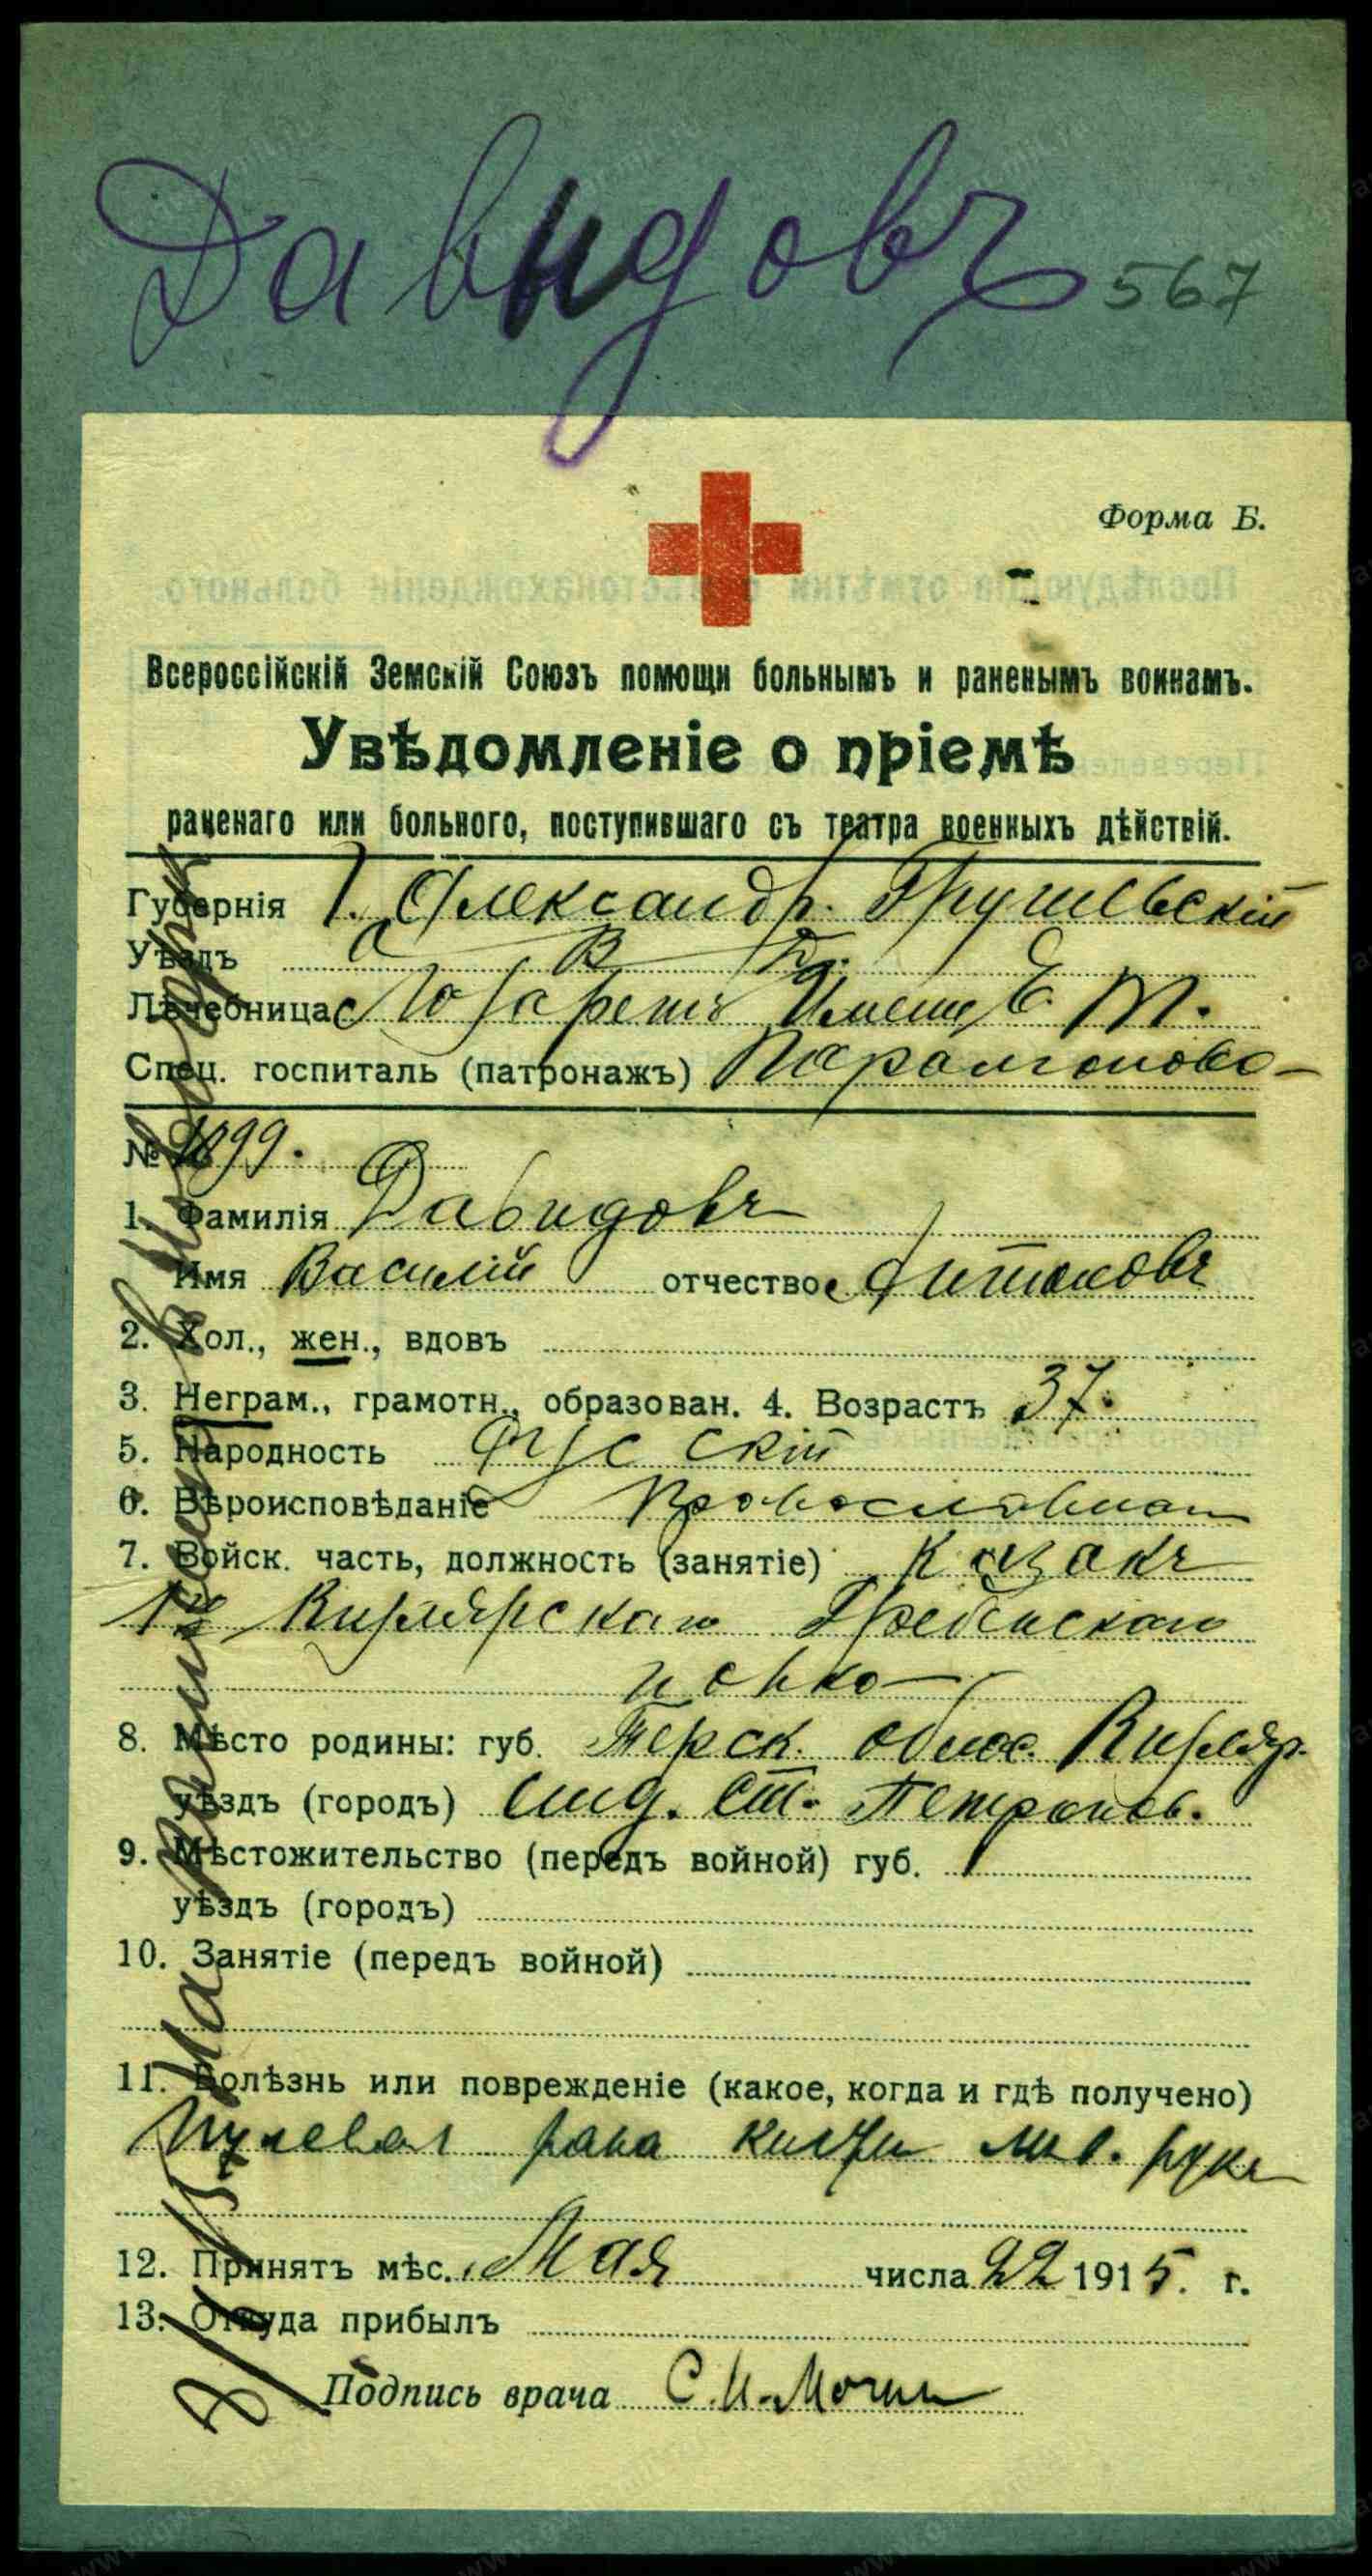 Давидовъ 567
Форма Б.
Всероссійскій Земскій Союзъ помощи больнымъ и раненымъ воинамъ.
Увѣдомленіе о пріемѣ
раненаго или больного, поступившаго съ театра военныхъ дѣйствій.
Губернія Г. Александр. Грушевскій
Уѣздъ В Д.
Лѣчебница Лазаретъ Имени Е. Т.
Спец. госпиталь (патронажъ) Парамонова
№ 1899.
1. Фамилія Давидовъ
Имя Василій отчество Антоновъ
2. Хол., жен., вдовъ
3. Неграм., грамотн., образован. 4. Возрастъ 37.
5. Народность Русскій
6. Вѣроисповѣданіе Православная
7. Войск. часть, должность (занятіе) Казакъ
1й Кизлярскаго Гребенскаго
полка
8. Мѣсто родины: губ. Терск. облас. Кизляр.
уѣздъ (городъ) ст.
9. Мѣстожительство (передъ войной) губ.
уѣздъ (городъ)
10. Занятіе (передъ войной)
11. Болѣзнь или поврежденіе (какое, когда и гдѣ получено)
Пулевая рана кисти лѣв. руки
12. Принятъ мѣс. Мая числа 22 1915. г.
13. Откуда прибылъ
Подпись врача С. И.